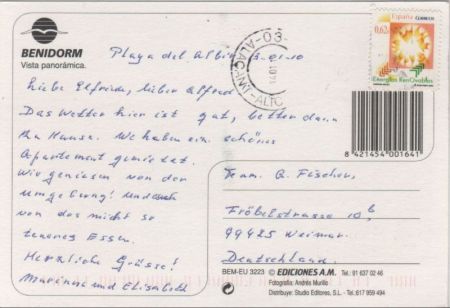 BENIDORM
Vista panorámica.
Playa del Albir 3-01-10
España CORREOS
0,62
Energías Renovables
Liebe Elfriede, lieber Alfred
Das Wetter hier ist gut, better dann
zu Hause. We haben ein schönes
Apartement gemietet.
Wir geniesen von der
Umgebung! Und auch
von das nicht so
teueres Essen.
Herzliche Grüsse!
Marinus und Elisabeth
8 421454 001641
Fam. G. Fischer,
Fröbelstrasse 10 b
99425 Weimar.
Deutschland.
BEM-EU 3223 © EDICIONES A.M. Tel.: 91 637 02 46
Fotografía: Andrés Murillo
Distribuye: Studio Editores, S.L. - Tel: 617 959 494